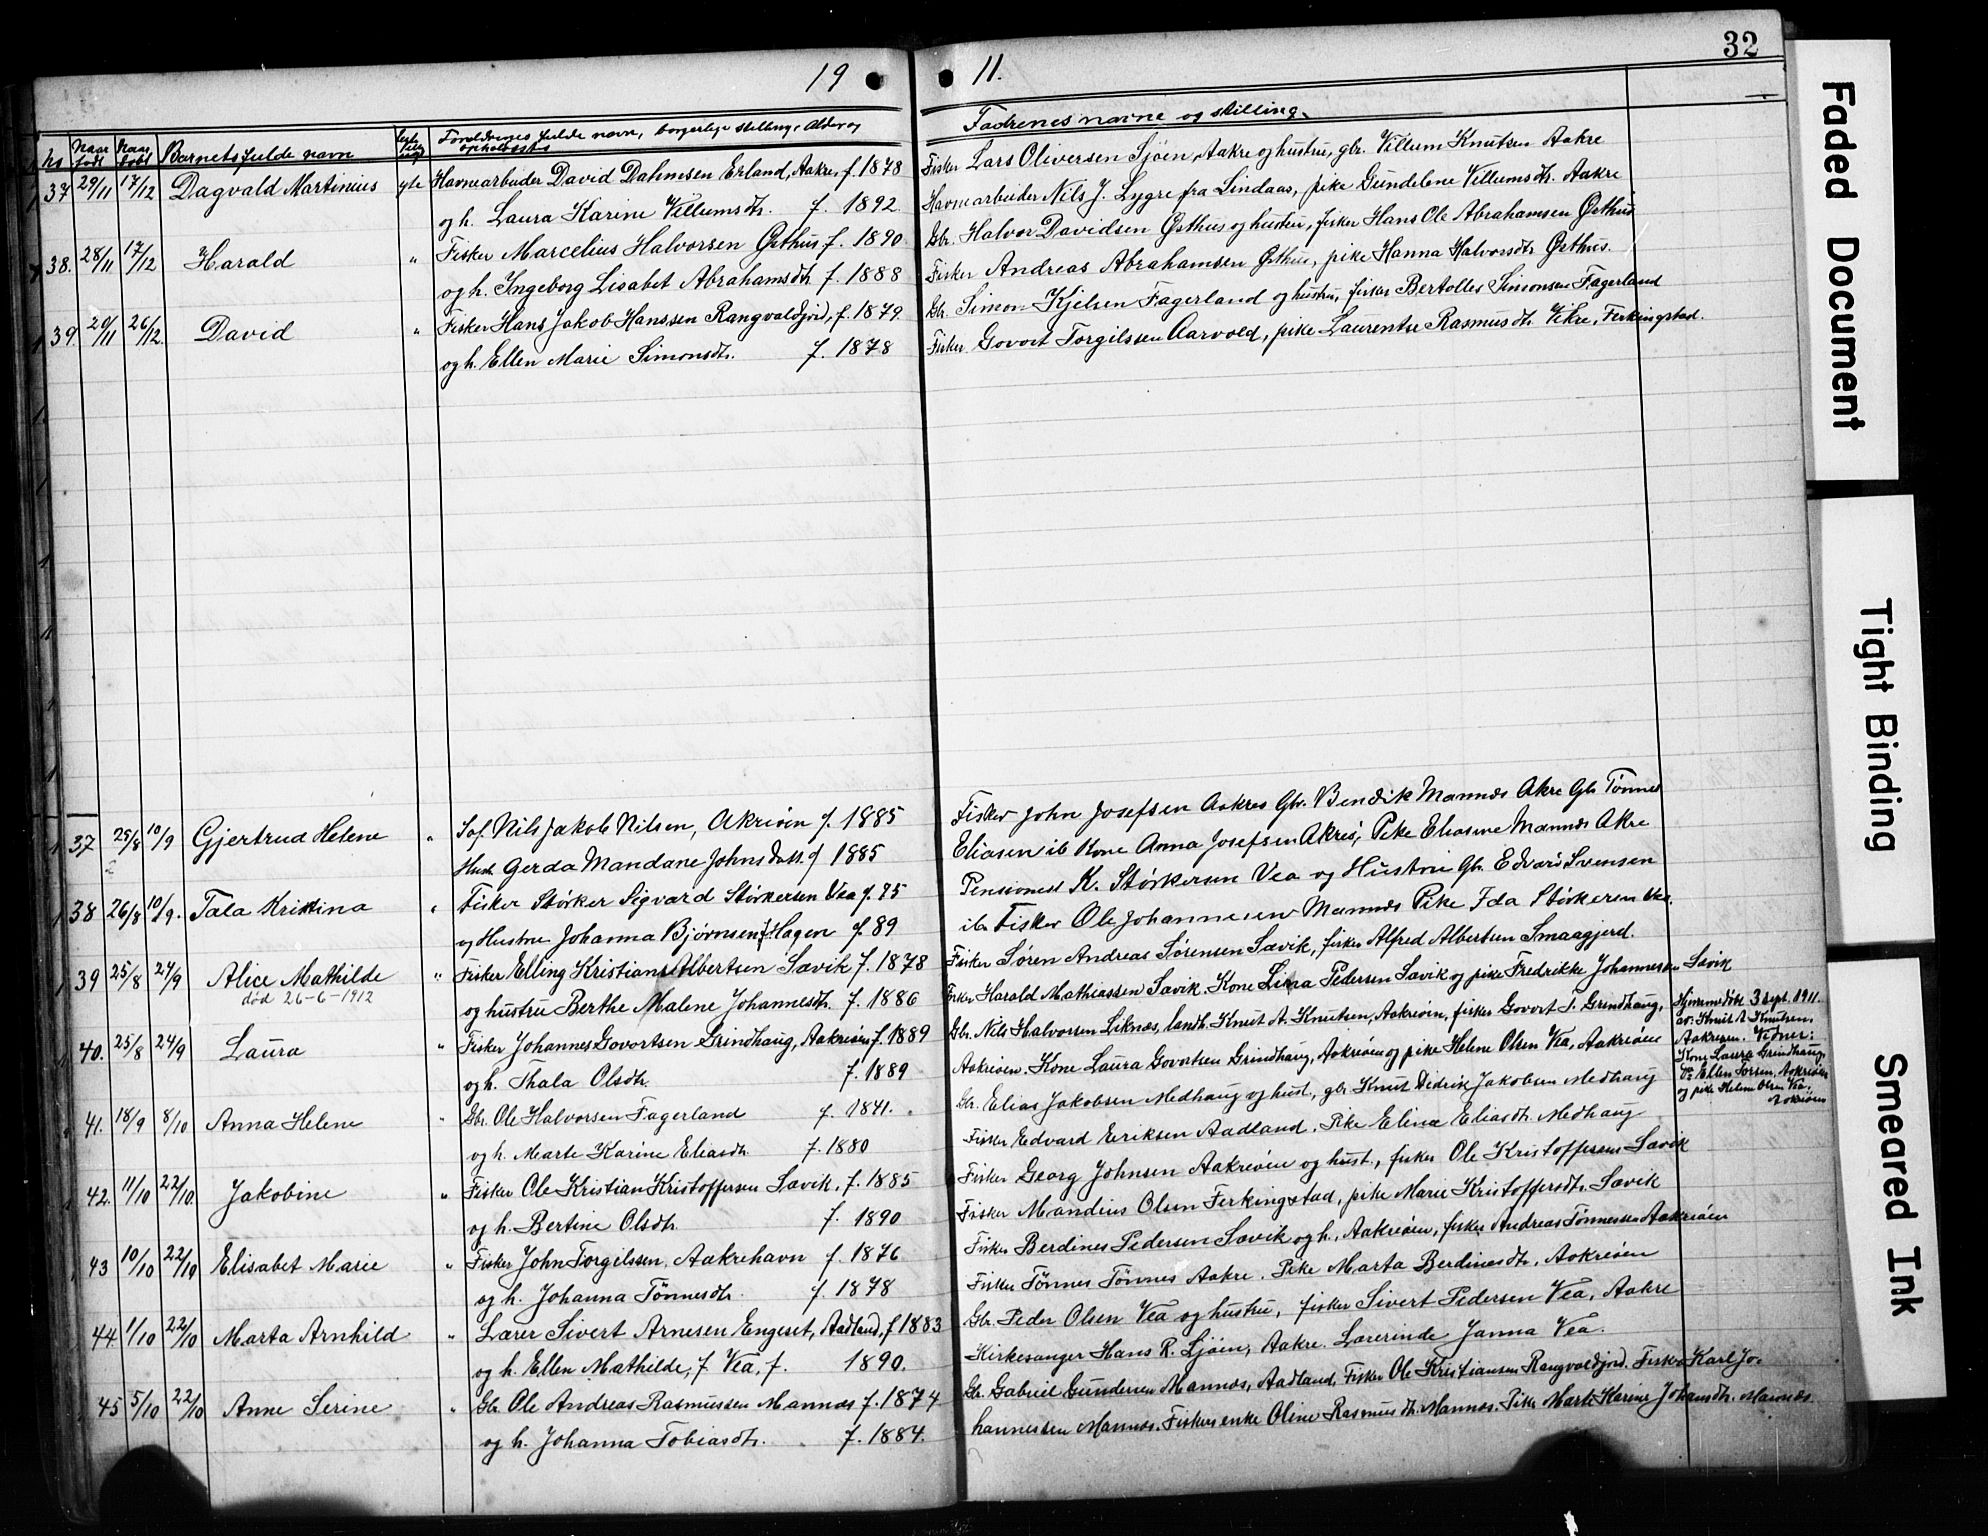 19 11. 32
No Naar født Naar døbt Barnets fulde navn Forældrenes fulde navn, borgerlige stilling, Alder og opholdssted Fadrenes navne og stilling.
37 29/11 17/12 Dagvald Martinius gte Havnearbeider David Dahmsen Erland, Aakre, f. 1878 Fisker Lars Oliversen Sjøen, Aakre og hustru, gbr. Villum Knutsen Aakre
og h. Laura Karine Villumsdtr. f. 1892. Havnearbeider Nils J. Lygre fra Lindaas, pike Gundelene Villumsdtr. Aakre
38. 28/11 17/12 Harald " Fisker Marcelius Halvorsen Østhus f. 1890 Gbr. Halvor Davidsen Østhus og hustru, fisker Hans Ole Abrahamsen Østhus
og h. Ingeborg Lisabet Abrahamsdtr f. 1888 Fisker Andreas Abrahamsen Østhus, pike Hanna Halvorsdtr Østhus.
39. 29/11 26/12. David " Fisker Hans Jakob Hanssen Rangvaldjord, f. 1879. Gbr. Simon Kjelsen Fagerland og hustru, fisker Bertolles Simonsen Fagerland
og h. Ellen Marie Simonsdtr. f. 1878 Fisker Govort Torgilssen Aarvold, pike Laurentse Rasmusdtr. Vikre, Ferkingstad.
37 25/8 10/9 Gjertrud Helene " Søf. Nils Jakob Nilsen, Akreøen f. 1885 Fisker John Josefsen Aakreø Gbr. Bendik Mannes Akre Gbr Tønnes
Hust. Gerda Mandane Johnsdatt. f 1885 Eliasen ib Kone Anna Josefsen Akreø, Pike Eliasine Mannes Akre
38 26/8 10/9. Tala Kristina " Fisker Størker Sigvard Størkersen Vea f. 85 Pensionest K. Størkersen Vea og Hustru Gbr. Edvard Svensen
og Hustru Johanna Bjørnsen f. Hagen f. 89 ib. Fisker Ole Johannesen Mannes Pike Ida Størkersen Vea.
39 25/8 24/9 Alice Mathilde " Fisker Elling Kristian Albertsen Sævik f. 1878 Fisker Søren Andreas Sørensen Sævik, fisker Alfred Albertsen Smaagjerd.
død 26-6-1912 og hustru Berthe Malene Johannesdtr. f. 1886 Fisker Harald Mathiassen Sævik. Kone Lina Pedersen Sævik og pike Fredrikke Johannesen Sævik
40. 25/8 24/9 Laura " Fisker Johannes Govortsen Grindhaug, Aakreøen f. 1889 Gbr. Nils Halvorsen Liknes, landh. Knut A. Knutsen, Aakreøen, fisker Govort T. Grindhaug,
og h. Thala Olsdtr. f. 1889 Aakreøen. Kone Laura Govortsen Grindhaug, Aakreøen og pike Helene Olsen Vea, Aakreøen
Hjemmedøbt 3 sept. 1911.
av: Knut A Knutsen,
Aakreøen. Vidner:
Kone Laura Grindhaug,
Do Ellen Torsen, Aakreøen
og pike Helene Olsen Vea,
Aakreøen
41. 18/9 8/10 Anna Helene " Gbr. Ole Halvorsen Fagerland f. 1841. Gbr. Elias Jakobsen Medhaug og hust., gbr. Knut Didrik Jakobsen Medhaug
og h. Marte Karine Eliasdtr. f. 1880 Fisker Edvard Eriksen Aadland. Pike Eline Eliasdtr. Medhaug
42. 11/10 22/10. Jakobine " Fisker Ole Kristian Kristoffersen Sævik, f. 1885 Fisker Georg Johnsen Aakreøen og hust., fisker Ole Kristoffersen Sævik
og h. Bertine Olsdtr. f. 1890 Fisker Mandius Olsen Ferkingstad, pike Marie Kristoffersdtr. Sævik
43 10/10 22/10 Elisabet Marie " Fisker John Torgilssen, Aakrehavn f. 1876 Fisker Berdines Pedersen Sævik og h., Aakreøen, fisker Andreas Tønnessen Aakreøen
og h. Johanna Tönnesdtr. f. 1878 Fisker Tønnes Tønnes Aakre. Pike Marta Berdinesdtr, Aakreøen
44. 1/10 22/10 Marta Arnhild " Lærer Sivert Arnesen Engeset, Aadland, f. 1883 Gbr. Peder Olsen Vea og hustru, fisker Sivert Pedersen Vea, Aakre
og h. Ellen Mathilde, f. Vea, f. 1890. Kirkesanger Hans R. Sjøen, Aakre. Lærerinde Janna Vea.
45 5/10 22/10 Anne Serine " Gbr. Ole Andreas Rasmussen Mannes f. 1874 Gbr. Gabriel Gundersen Mannes, Aadland, Fisker Ole Kristiansen Rangvaldjord. Fisker Karl Jo-
og h. Johanna Tobiasdtr. f. 1884. hannessen Mannes. Fiskersenke Oline Rasmusdtr. Mannes. Pike Marte Karine Johansdtr. Mannes.
Faded Document
Tight Binding
Smeared Ink